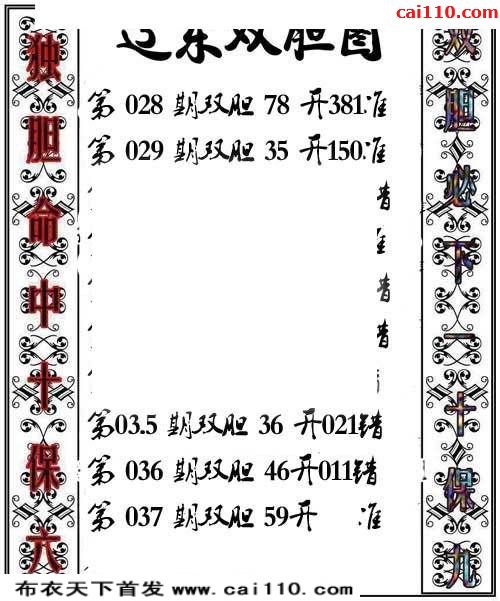 cai110.com
辽东双胆图
独胆命中十保六
第 028 期双胆 78 开381准
第 029 期双胆 35 开150准
错
准
错
错
第03.5 期双胆 36 开021错
第 036 期双胆 46开011错
第 037 期双胆 59开 准
双胆必下一十保九
布衣天下首发 www.cai110.com